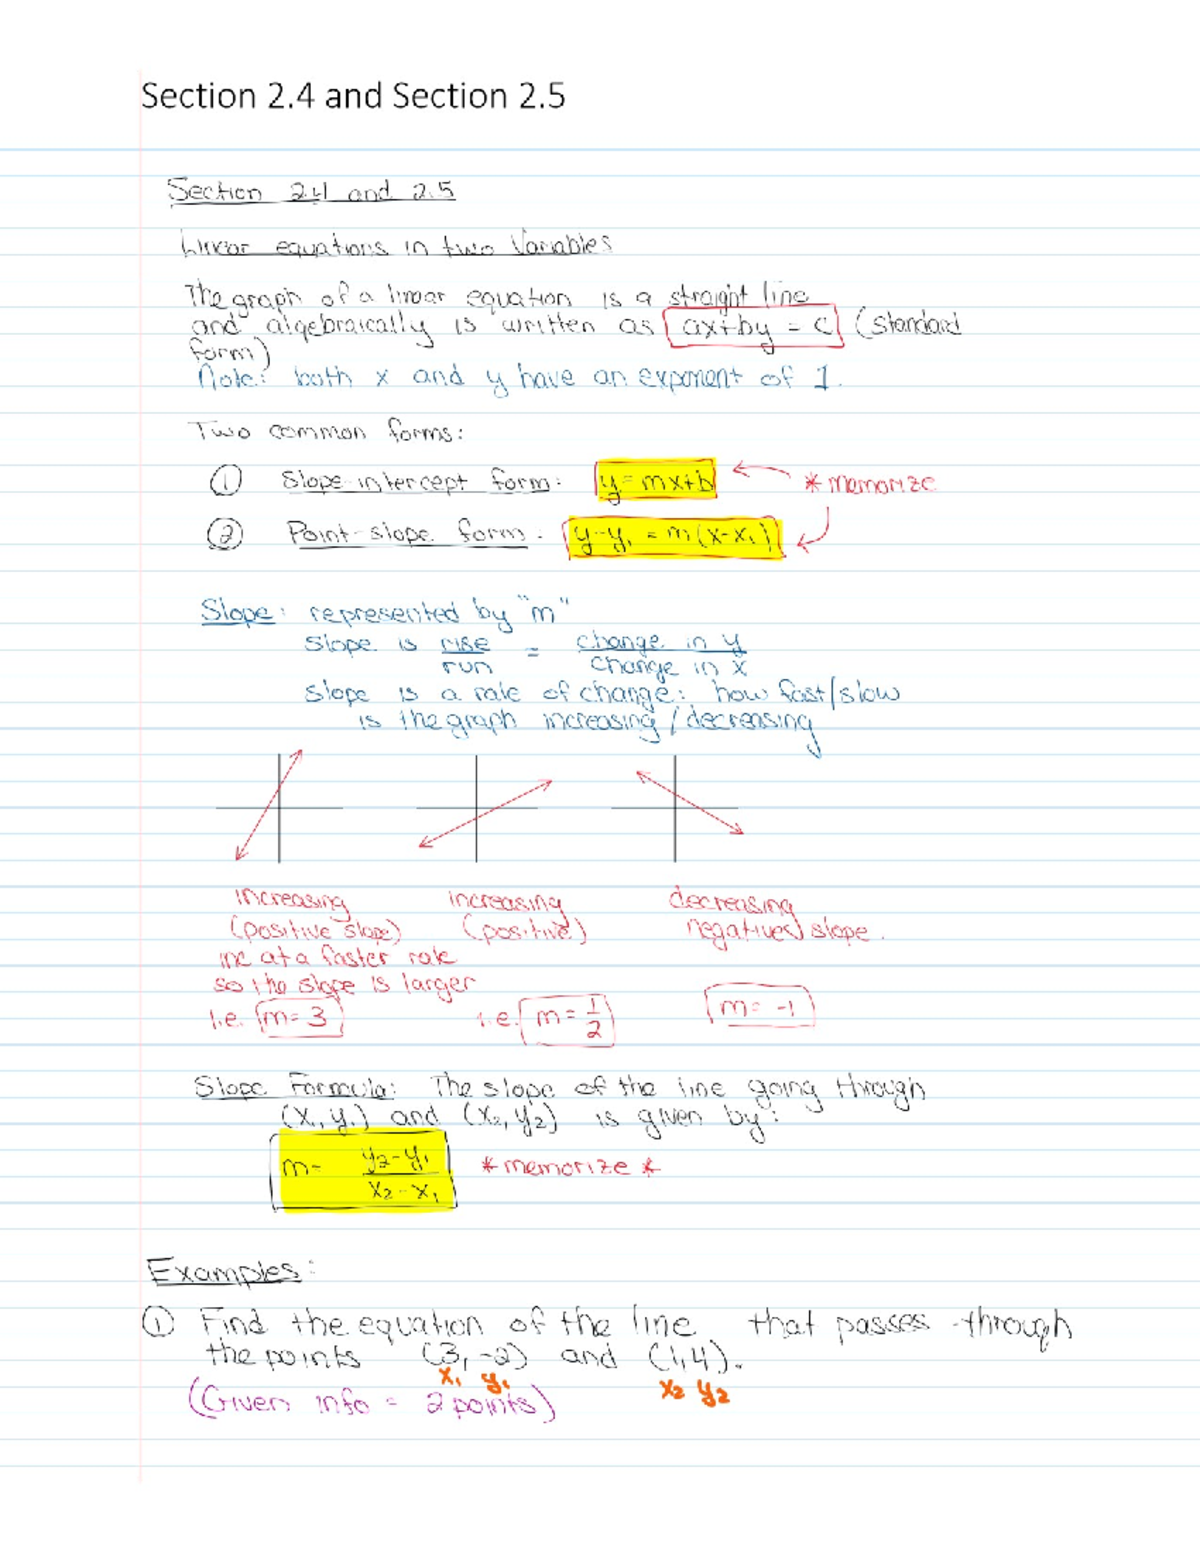 Section 2.4 and Section 2.5
Section 2.4 and 2.5
Linear equations in two Variables
The graph of a linear equation is a straight line
and algebraically is written as ax+by = c (standard
form)
Note: both x and y have an exponent of 1.
Two common forms:
① Slope-intercept form: y = mx+b * memorize
② Point-slope form: y-y₁ = m(x-x₁)
Slope: represented by "m"
Slope is rise/run = change in y/change in x
slope is a rate of change: how fast/slow
is the graph increasing / decreasing
increasing increasing decreasing
(positive slope) (positive) negative slope.
inc at a faster rate
so the slope is larger
i.e. m = 3 i.e. m = 1/2 m = -1
Slope Formula: The slope of the line going through
(x₁, y₁) and (x₂, y₂) is given by:
m = y₂-y₁/x₂-x₁ * memorize *
Examples:
① Find the equation of the line that passes through
the points (3, -2) and (1, 4).
x₁ y₁ x₂ y₂
(Given info = 2 points)